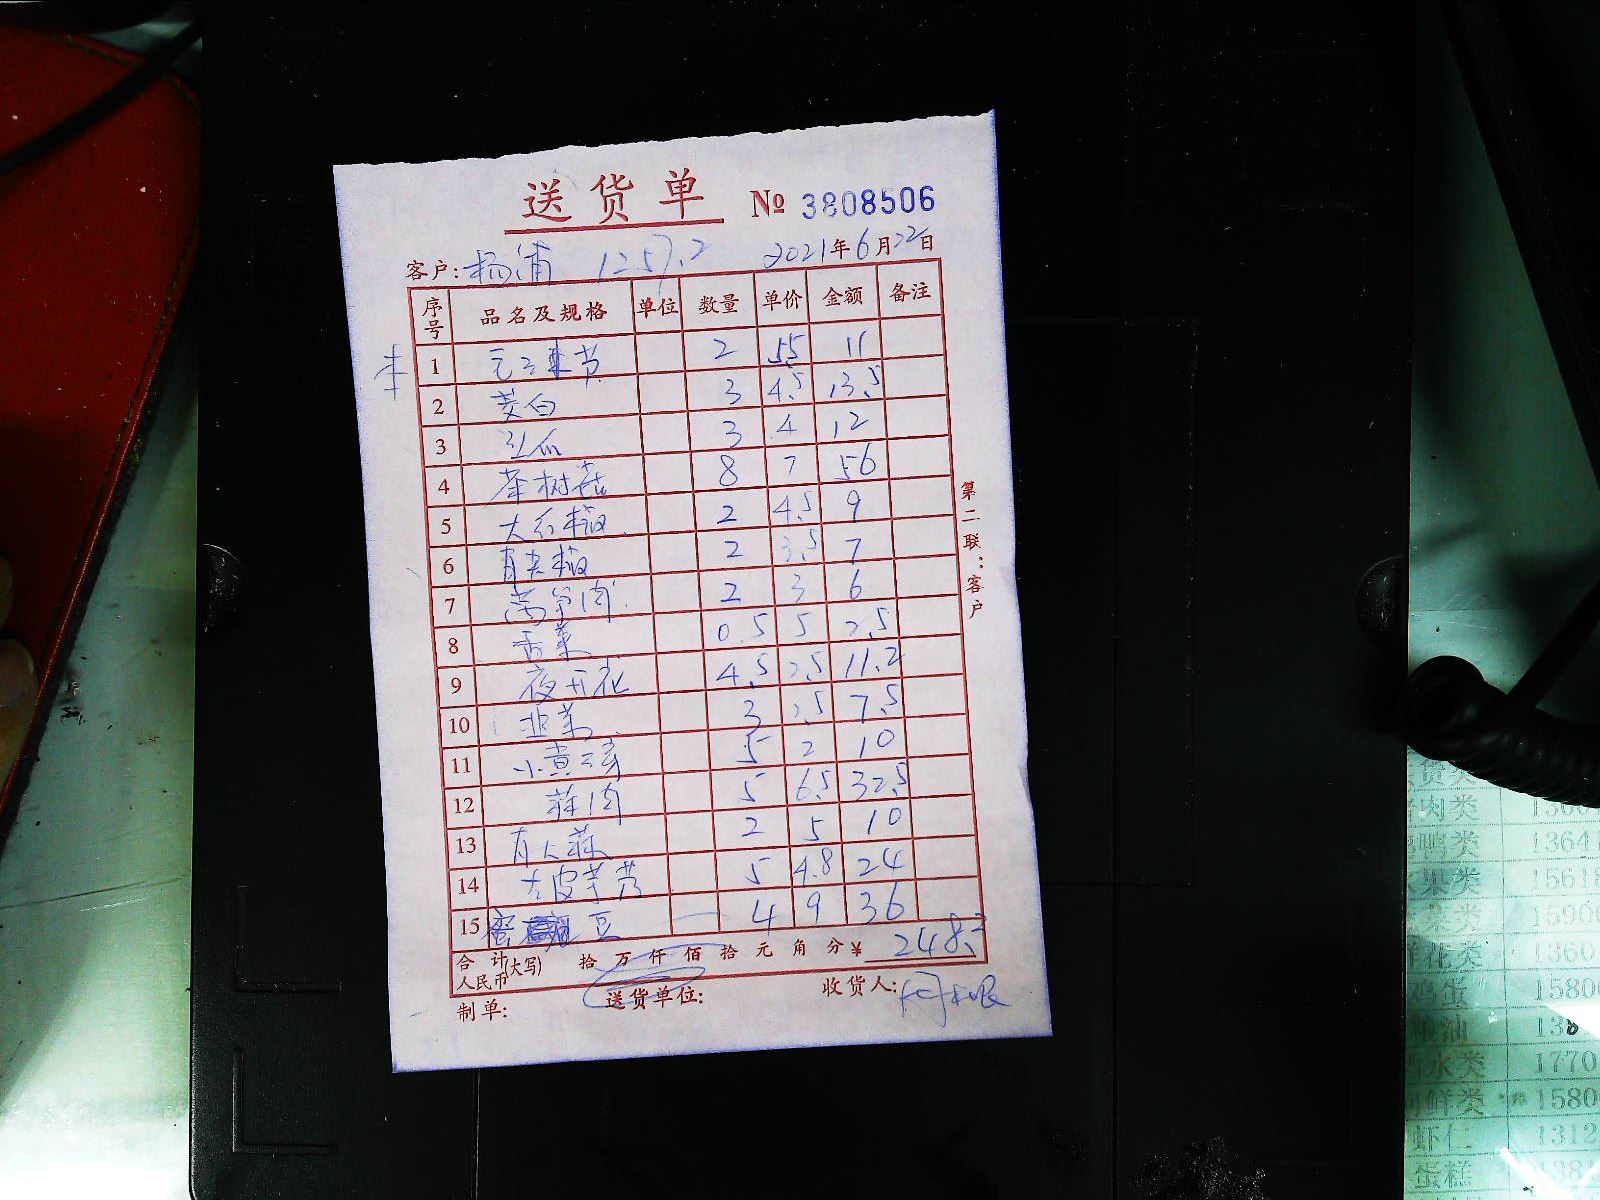 送货单 № 3808506
客户: 杨浦 1257.2 2021年6月22日
序号 品名及规格 单位 数量 单价 金额 备注
本
1 2 5.5 11
2 茭白 3 4.5 13.5
3 瓜 3 4 12
4 茶树菇 8 7 56
5 大红椒 2 4.5 9
6 青尖椒 2 3.5 7
7 莴笋肉 2 3 6
8 香菜 0.5 5 2.5
9 夜开花 4.5 2.5 11.2
10 韭菜 3 2.5 7.5
11 小黄 5 2 10
12 蒜肉 5 6.5 32.5
13 青大蒜 2 5 10
14 去皮芋艿 5 4.8 24
15 蜜豆 4 9 36
合计人民币(大写) 拾万仟佰拾元角分¥ 248.2
制单: 送货单位: 收货人:
第二联:客户
肉类
鸭类 13641
果类 15618
菜类 1590
花类 1360
鸡蛋 1580
粮油 138
水类 1770
鲜类 1580
虾仁 1312
蛋糕 1381